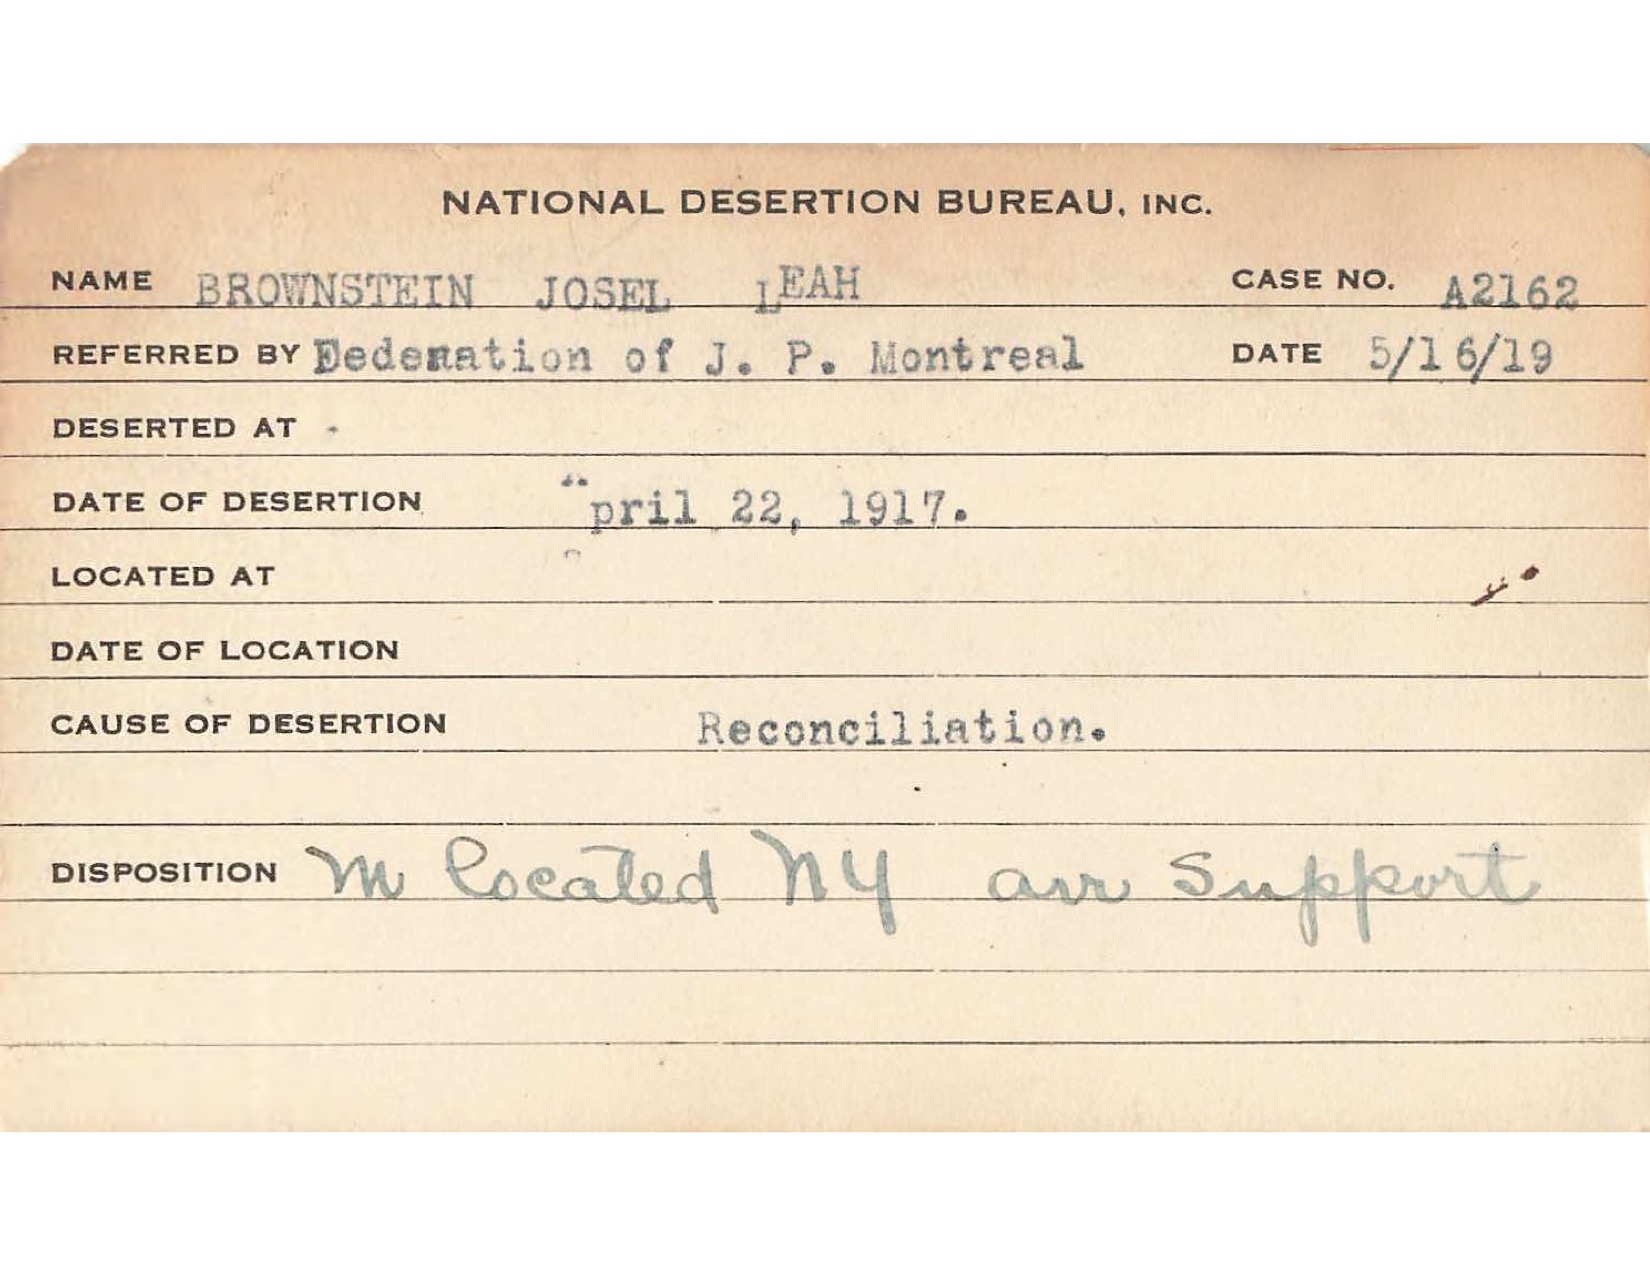 NATIONAL DESERTION BUREAU, INC.
NAME BROWNSTEIN JOSEL LEAH CASE NO. A2162
REFERRED BY Federation of J. P. Montreal DATE 5/16/19
DESERTED AT
DATE OF DESERTION April 22, 1917.
LOCATED AT
DATE OF LOCATION
CAUSE OF DESERTION Reconciliation.
DISPOSITION M located NY arr Support